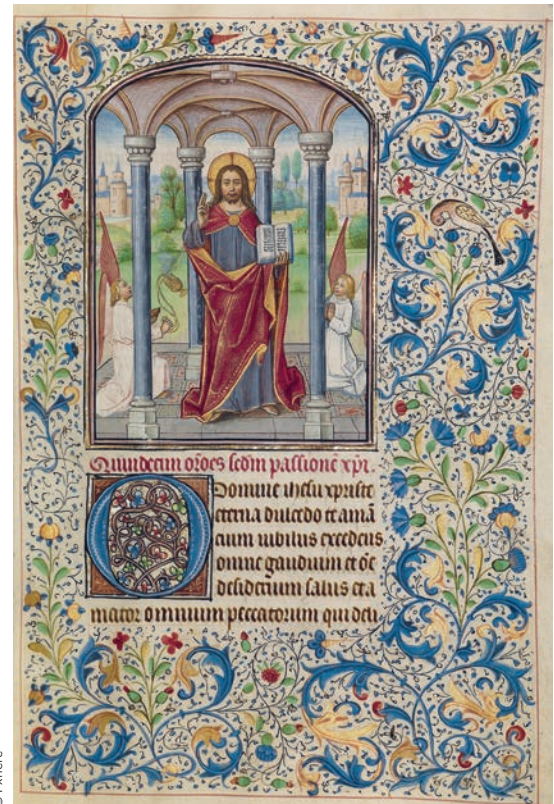 Quindecim orōes scdm passionē xpi.
O Domine ihesu xpriste
eterna dulcedo te amā
cium iubilus excedens
omne gaudium et oē
desiderium salus et a
mator omnium peccatorum qui deli